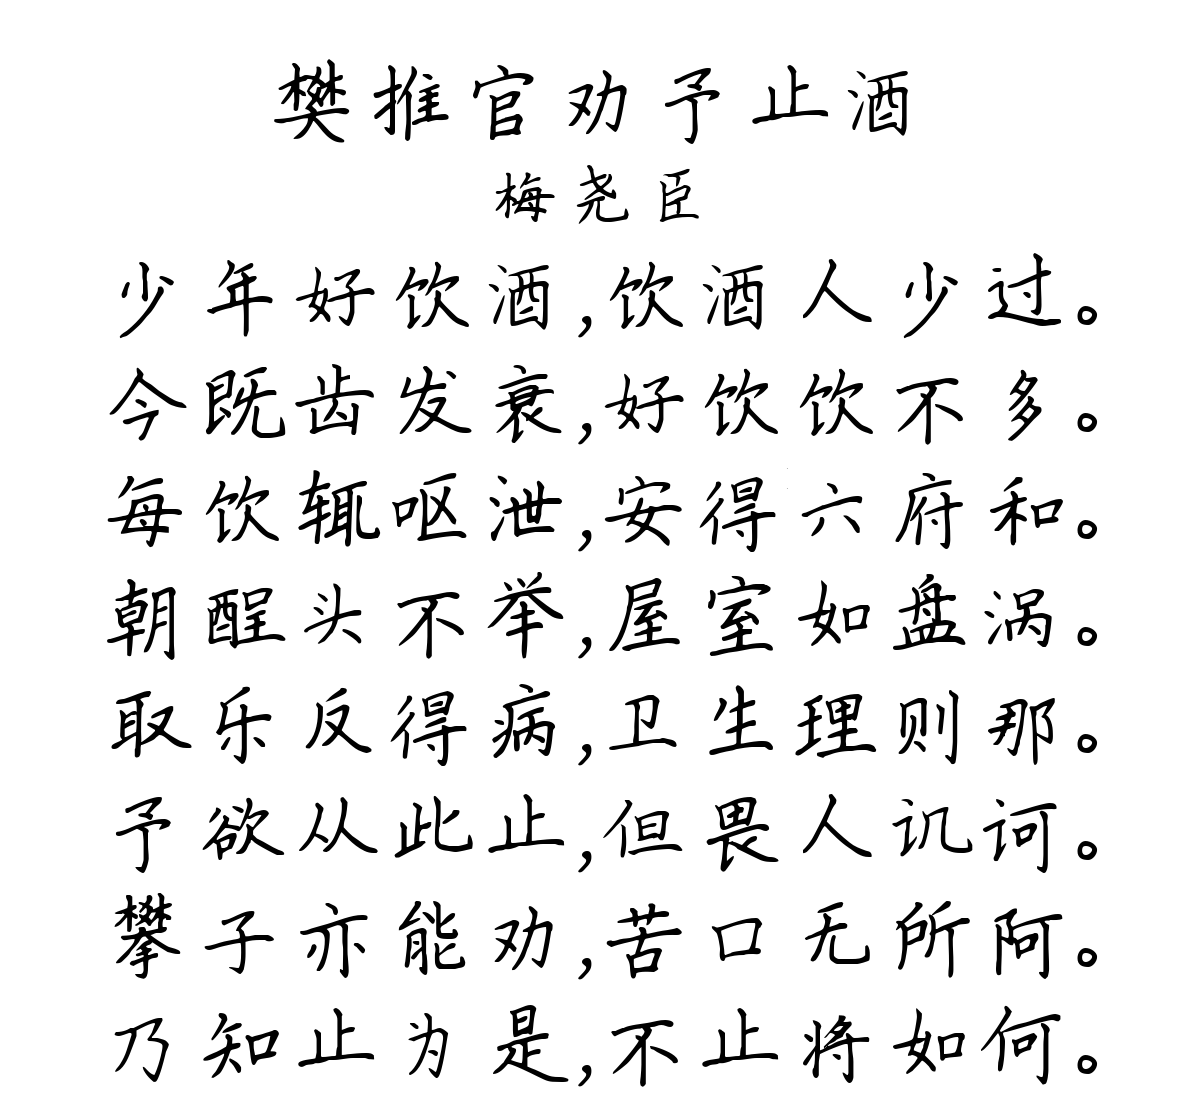 樊推官劝予止酒
梅尧臣
少年好饮酒,饮酒人少过。
今既齿发衰,好饮饮不多。
每饮辄呕泄,安得六府和。
朝酲头不举,屋室如盘涡。
取乐反得病,卫生理则那。
予欲从此止,但畏人讥诃。
攀子亦能劝,苦口无所阿。
乃知止为是,不止将如何。